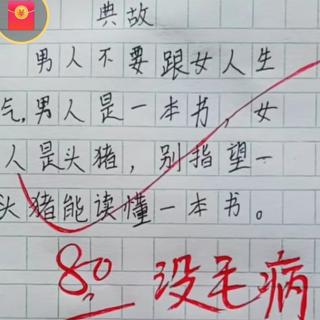 典故
男人不要跟女人生
气,男人是一本书,女
人是头猪,别指望一
头猪能读懂一本书。
80 没毛病